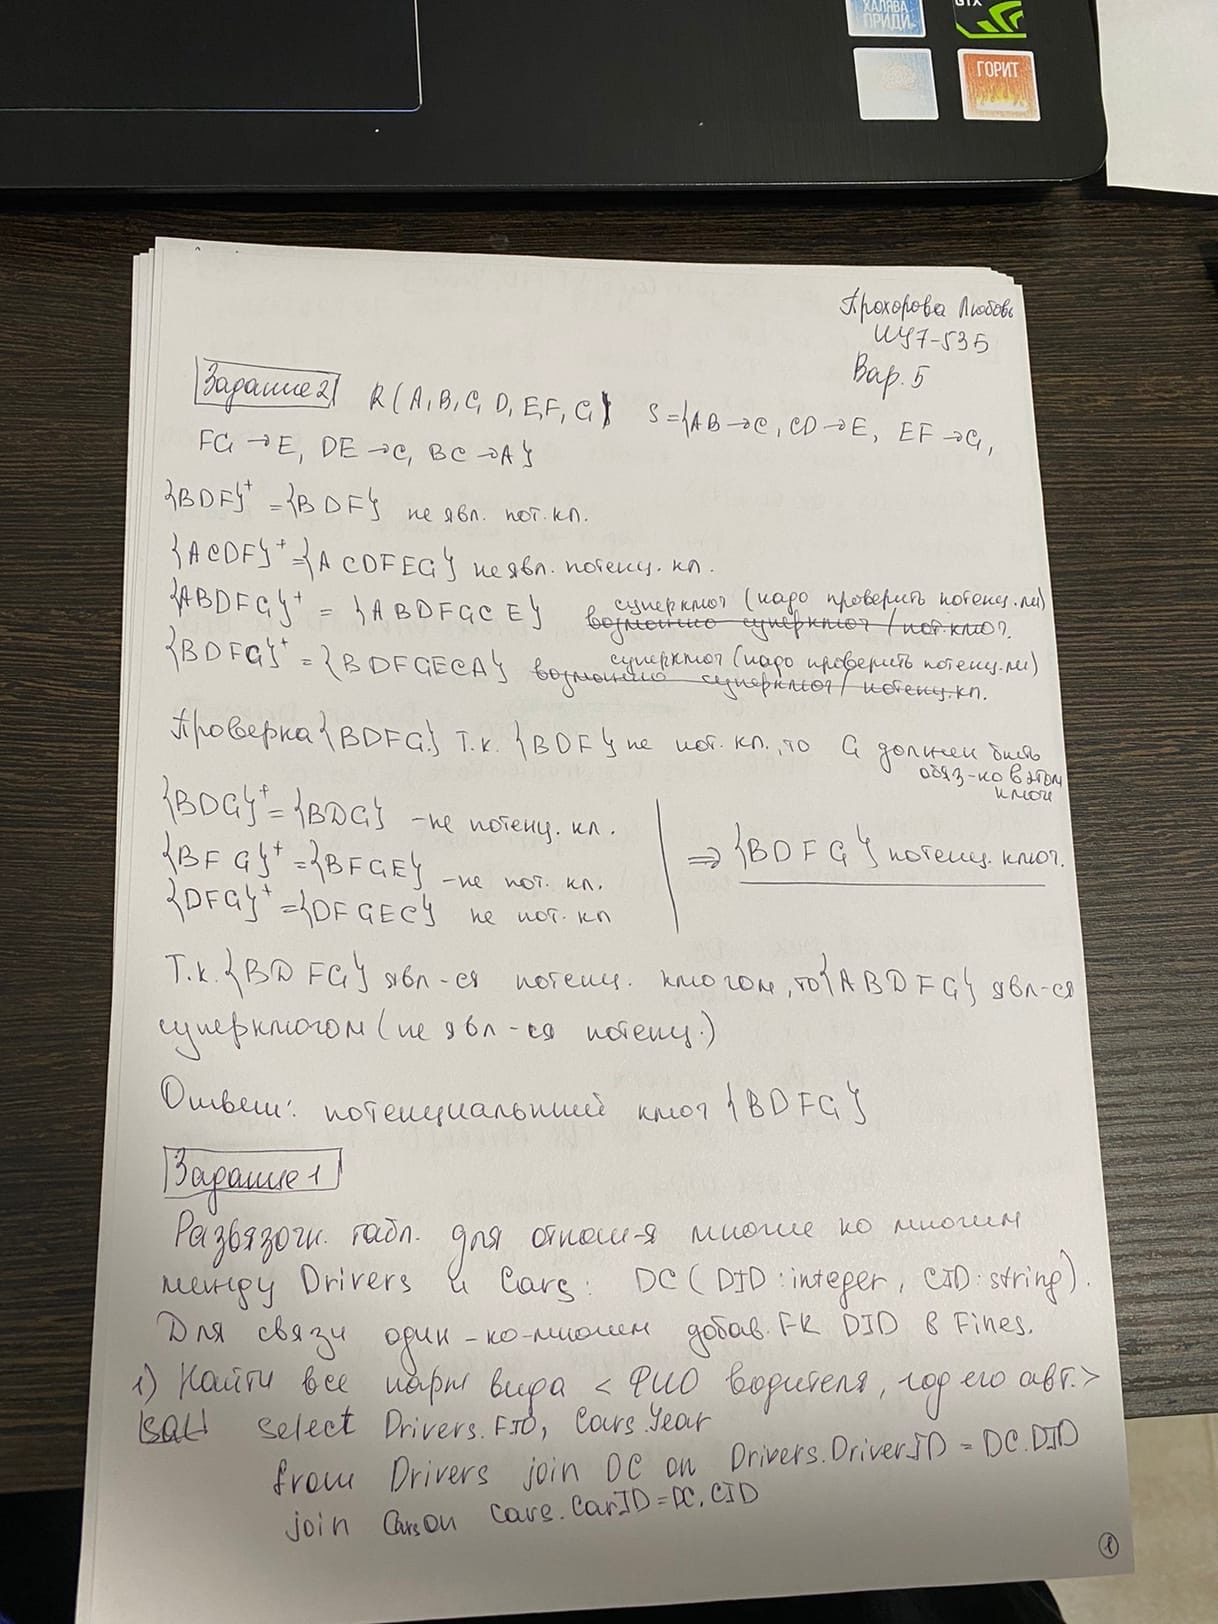 ХАЛЯВА
ПРИДИ
GTX
ГОРИТ
Прохорова Любовь
ИУ7-53Б
Вар. 5
Задание 2 R(A,B,C,D,E,F,G) S={AB→C, CD→E, EF→G,
FG→E, DE→C, BC→A}
{BDF}⁺={BDF} не явл. пот. кл.
{ACDF}⁺={ACDFEG} не явл. потенц. кл.
{ABDFG}⁺ = {ABDFGCE} суперключ (надо проверить потенц. ли)
возможно суперключ / пот. ключ.
{BDFG}⁺ = {BDFGECA} суперключ (надо проверить потенц. ли)
возможно суперключ / потенц. кл.
Проверка {BDFG} Т.к. {BDF} не пот. кл., то G должен быть
обяз-но в этом
ключе
{BDG}⁺={BDG} - не потенц. кл.
{BFG}⁺={BFGE} - не пот. кл.
{DFG}⁺={DFGEC} не пот. кл
⇒ {BDFG} потенц. ключ.
Т.к. {BDFG} явл-ся потенц. ключом, то {ABDFG} явл-ся
суперключом (не явл-ся потенц.)
Ответ: потенциальный ключ {BDFG}
Задание 1
Развязочн. табл. для отнош-я многие ко многим
между Drivers и Cars: DC(DID:integer, CID:string).
Для связи один-ко-многим добав. FK DID в Fines.
1) Найти все пары вида <ФИО водителя, год его авт.>
SQL select Drivers.FIO, Cars.Year
from Drivers join DC on Drivers.DriverID = DC.DID
join Cars on Cars.CarID=DC.CID
1